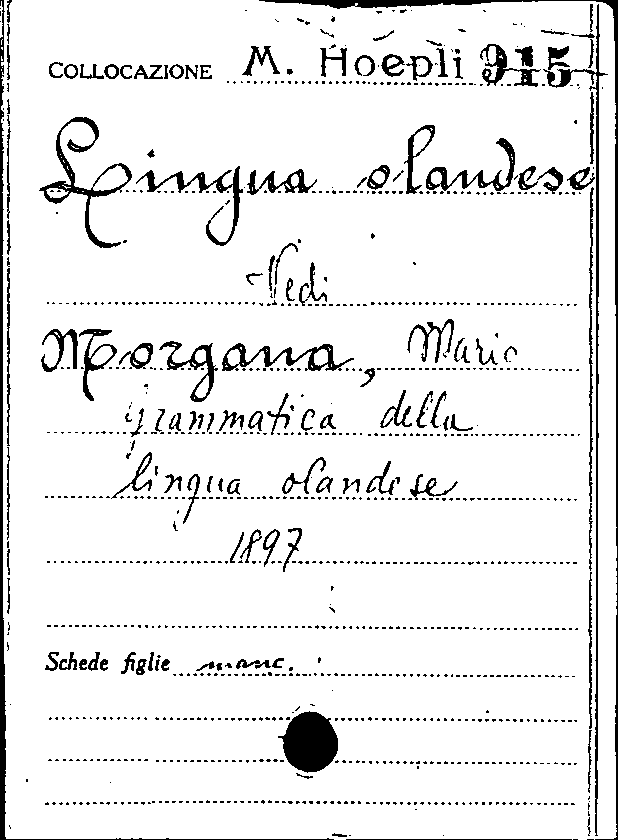 COLLOCAZIONE M. Hoepli 915
Lingua olandese
Vedi
Morgana, Mario
grammatica della
lingua olandese
1897
Schede figlie manc.